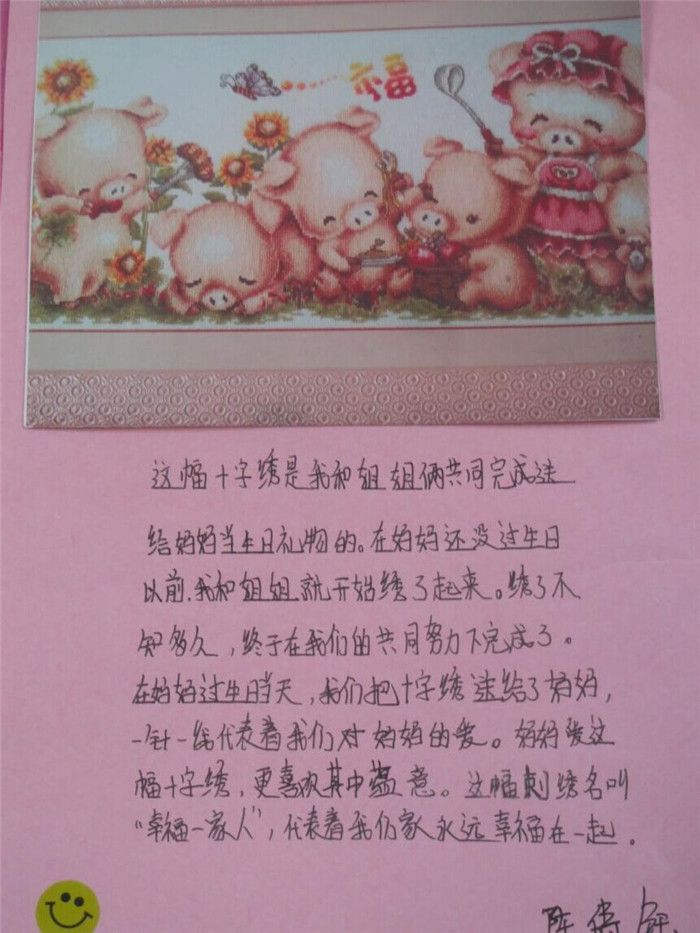 福
这幅十字绣是我和姐姐俩共同完成送
给妈妈当生日礼物的。在妈妈还没过生日
以前,我和姐姐就开始绣了起来。绣了不
知多久,终于在我们的共同努力下完成了。
在妈妈过生日当天,我们把十字绣送给了妈妈,
一针一线代表着我们对妈妈的爱。妈妈爱这
幅十字绣,更喜欢其中蕴意。这幅刺绣名叫
“幸福一家人”,代表着我们家永远幸福在一起。
陈